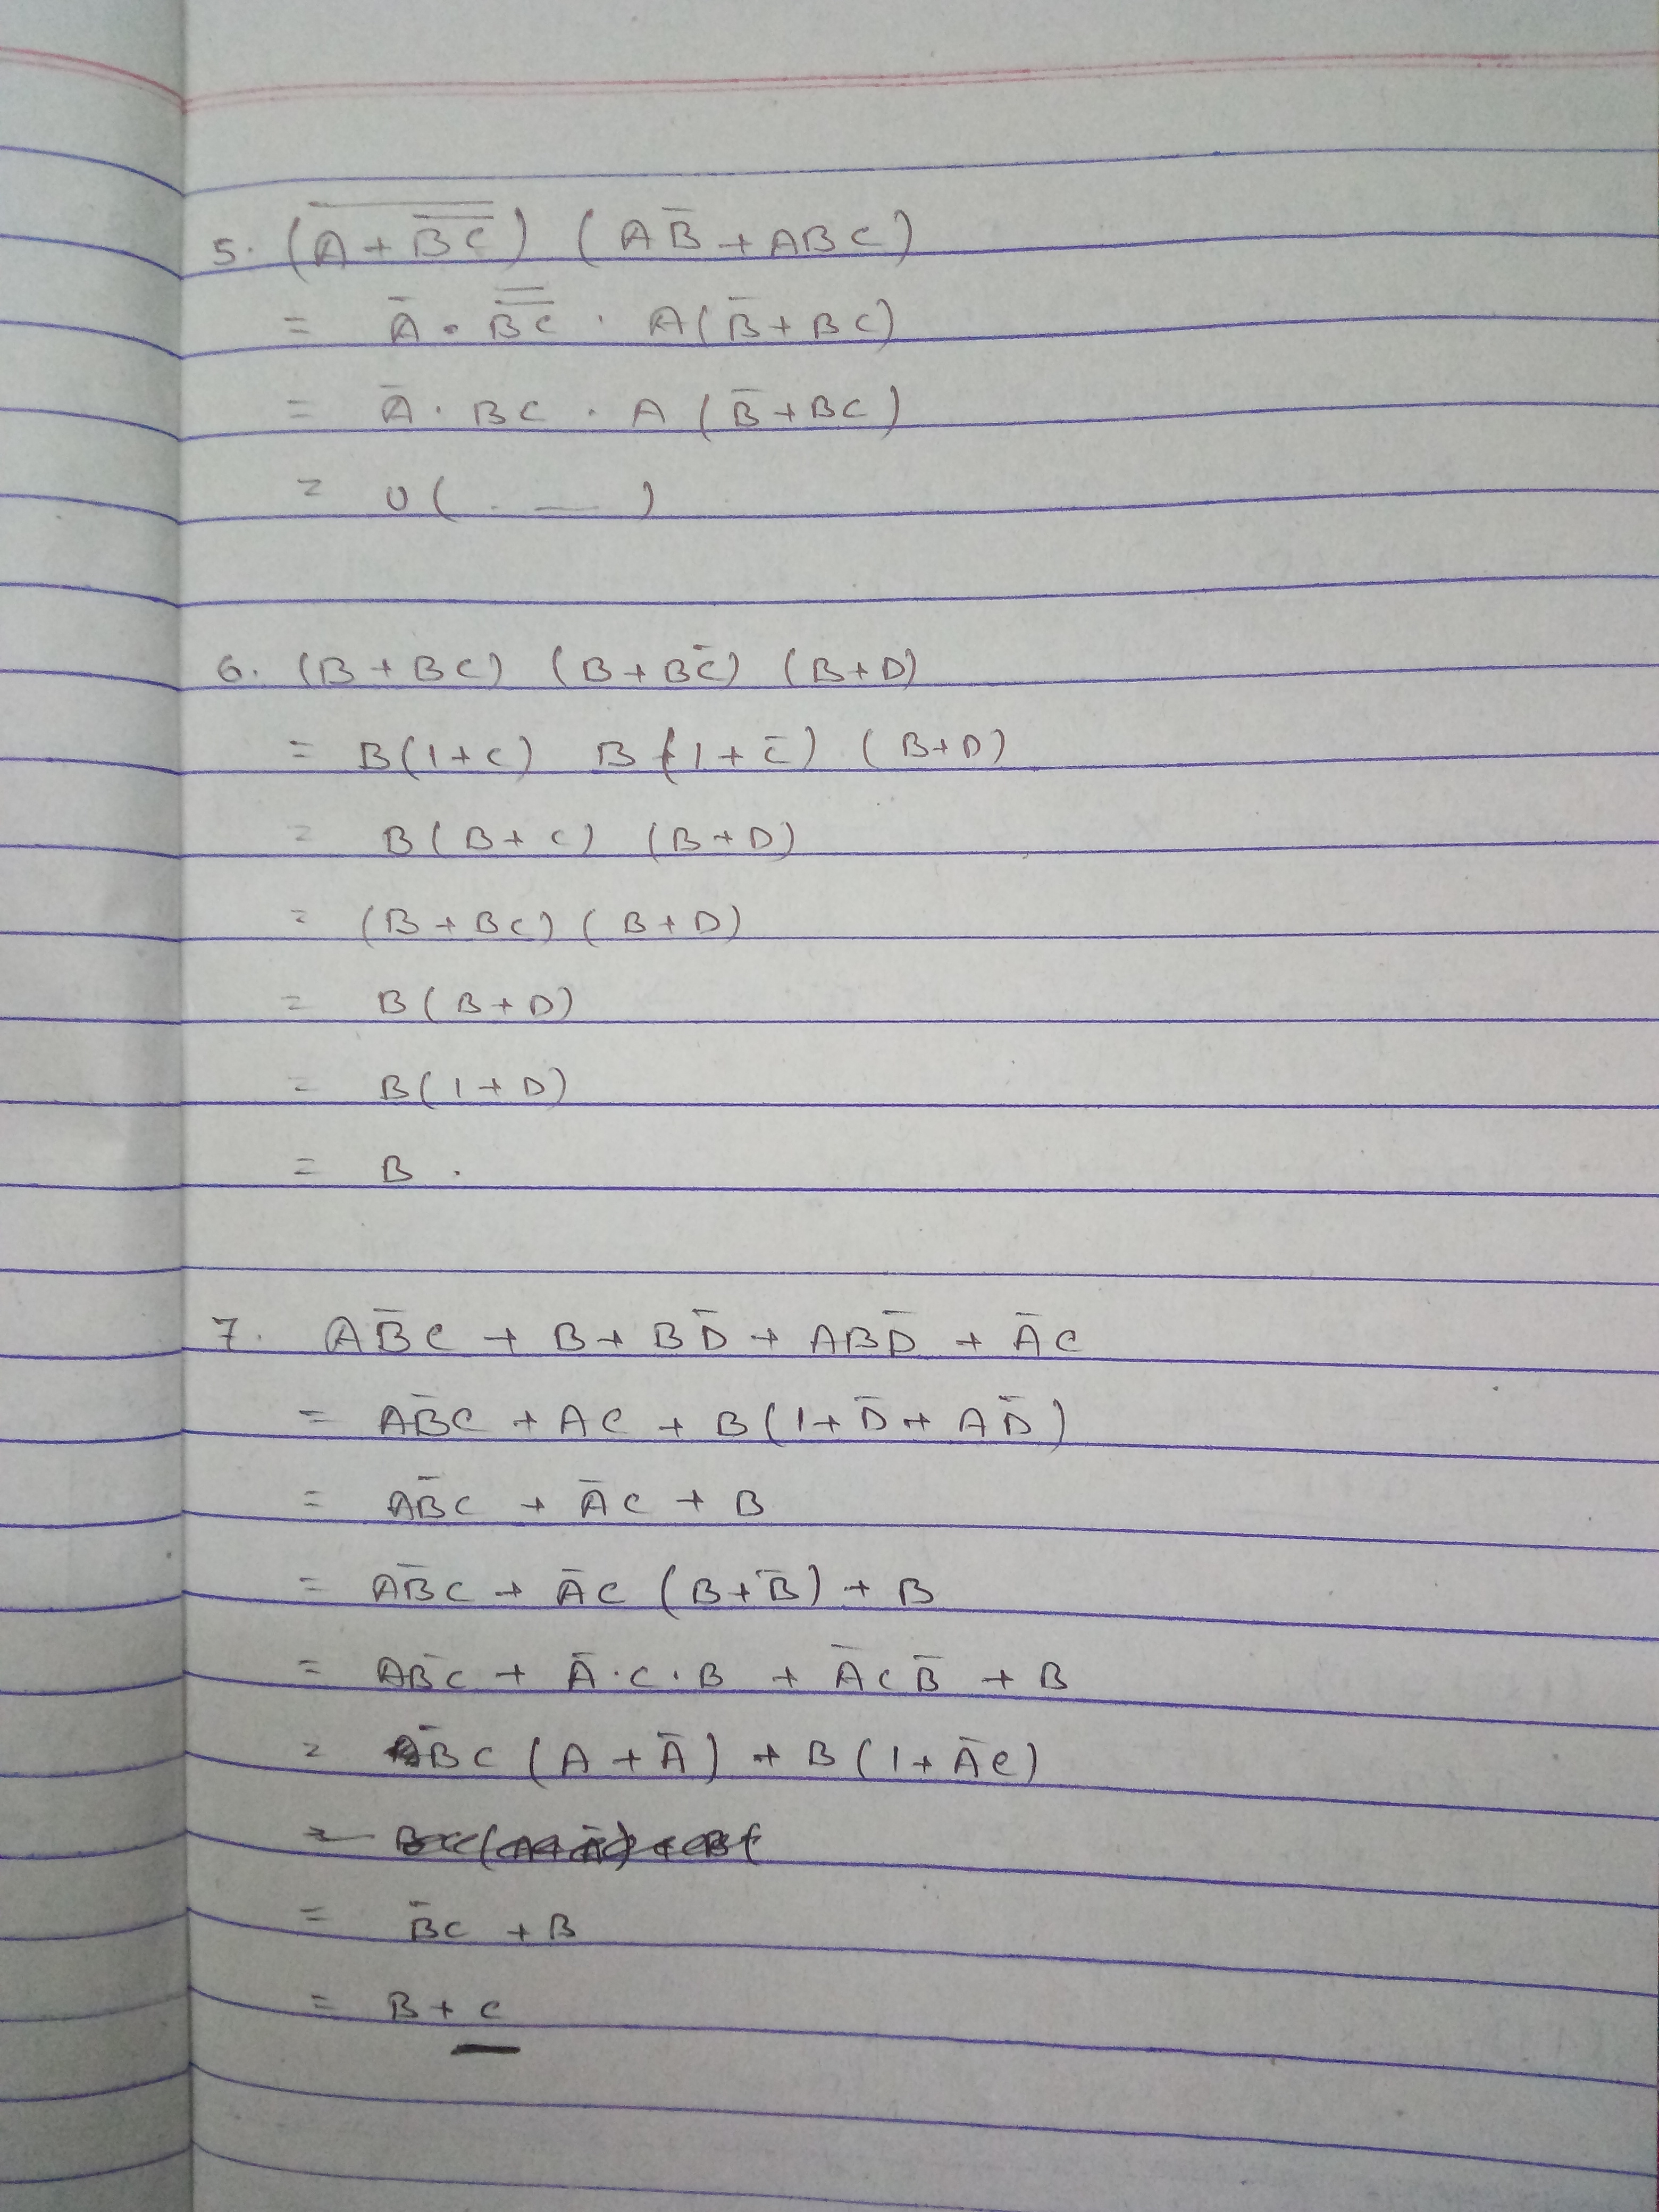 5. (A̅ ̅+̅ ̅B̿C̿) (AB̅ + ABC)
= A̅ . B̿C̿ . A(B̅ + BC)
= A̅ . BC . A (B̅ + BC)
= 0 ( . — )
6. (B + BC) (B + BC̅) (B + D)
= B(1+C) B(1+C̅) (B+D)
= B(B+C) (B+D)
= (B + BC) (B+D)
= B(B+D)
= B(1+D)
= B .
7. AB̅C + B + BD̅ + ABD̅ + A̅C
= AB̅C + AC + B(1+D̅+AD̅)
= AB̅C + A̅C + B
= AB̅C + A̅C (B+B̅) + B
= AB̅C + A̅.C.B + A̅CB̅ + B
= B̅C (A + A̅) + B(1+A̅C)
= B̅C + B
= B + C